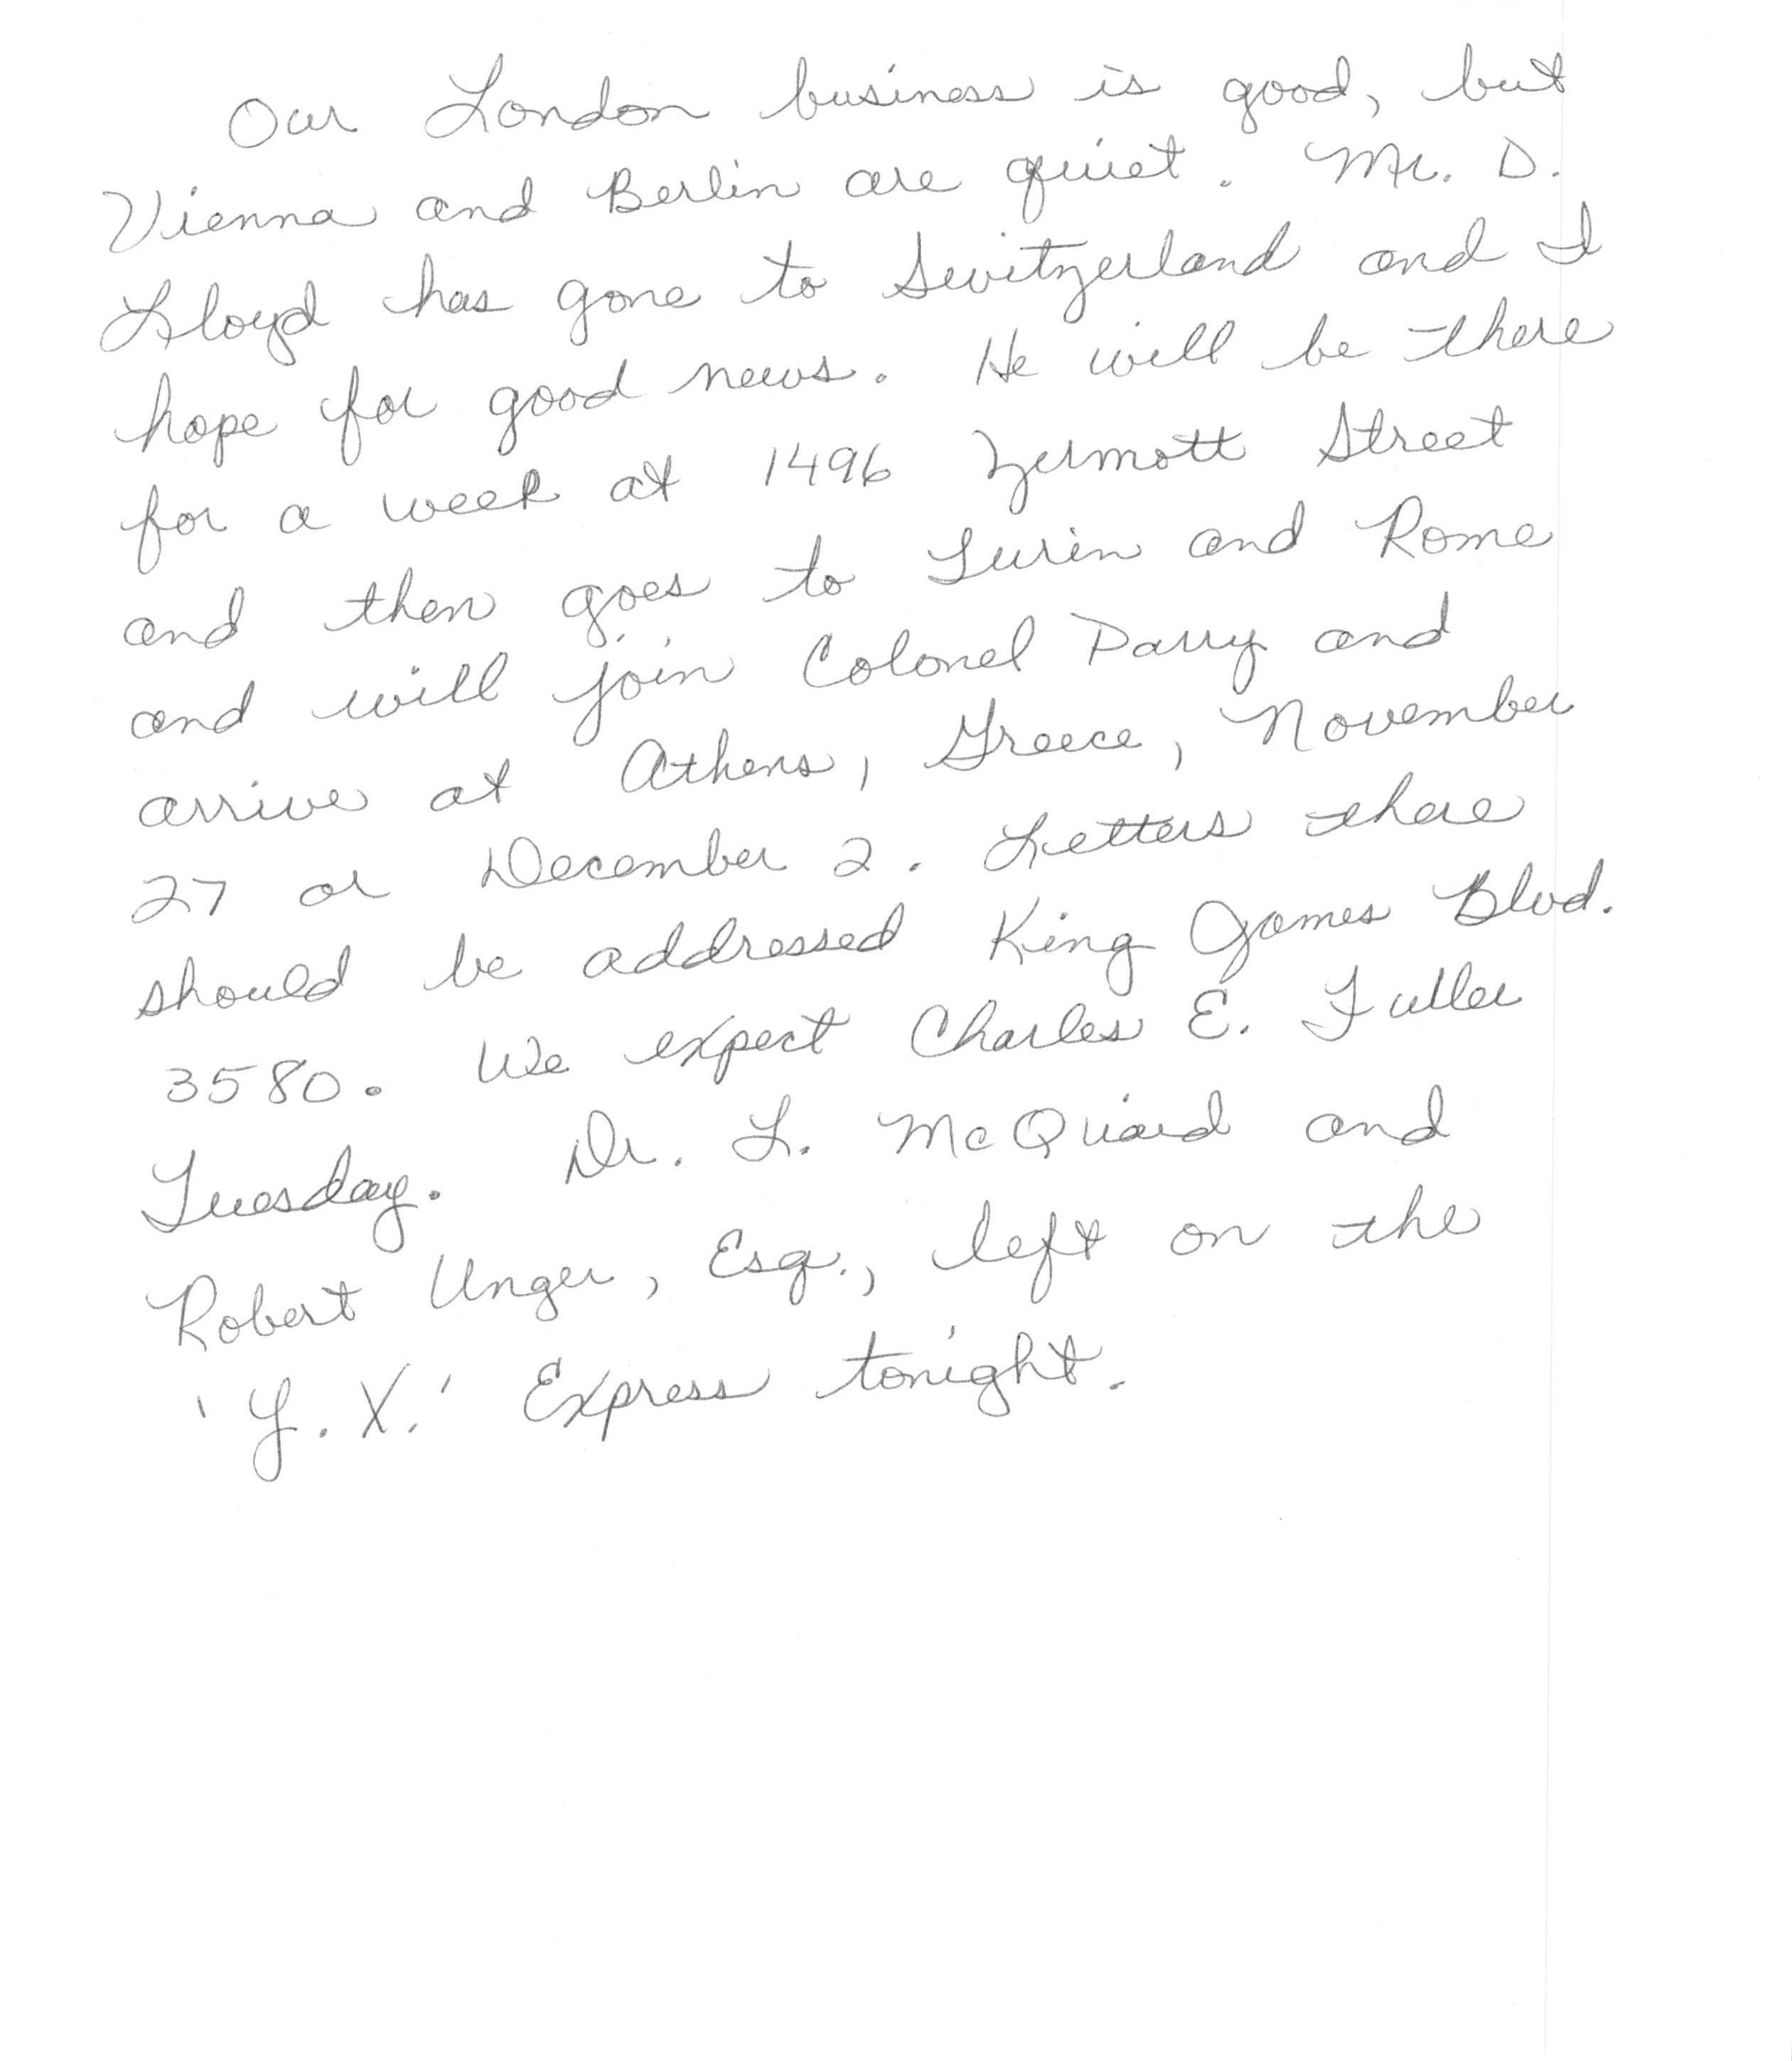 Our London business is good, but
Vienna and Berlin are quiet. Mr. D.
Lloyd has gone to Switzerland and I
hope for good news. He will be there
for a week at 1496 Zermott Street
and then goes to Turin and Rome
and will join Colonel Parry and
arrive at Athens, Greece, November
27 or December 2. Letters there
should be addressed King James Blvd.
3580. We expect Charles E. Fuller
Tuesday. Dr. L. McQuaid and
Robert Unger, Esq., left on the
'Y. X.' Express tonight.